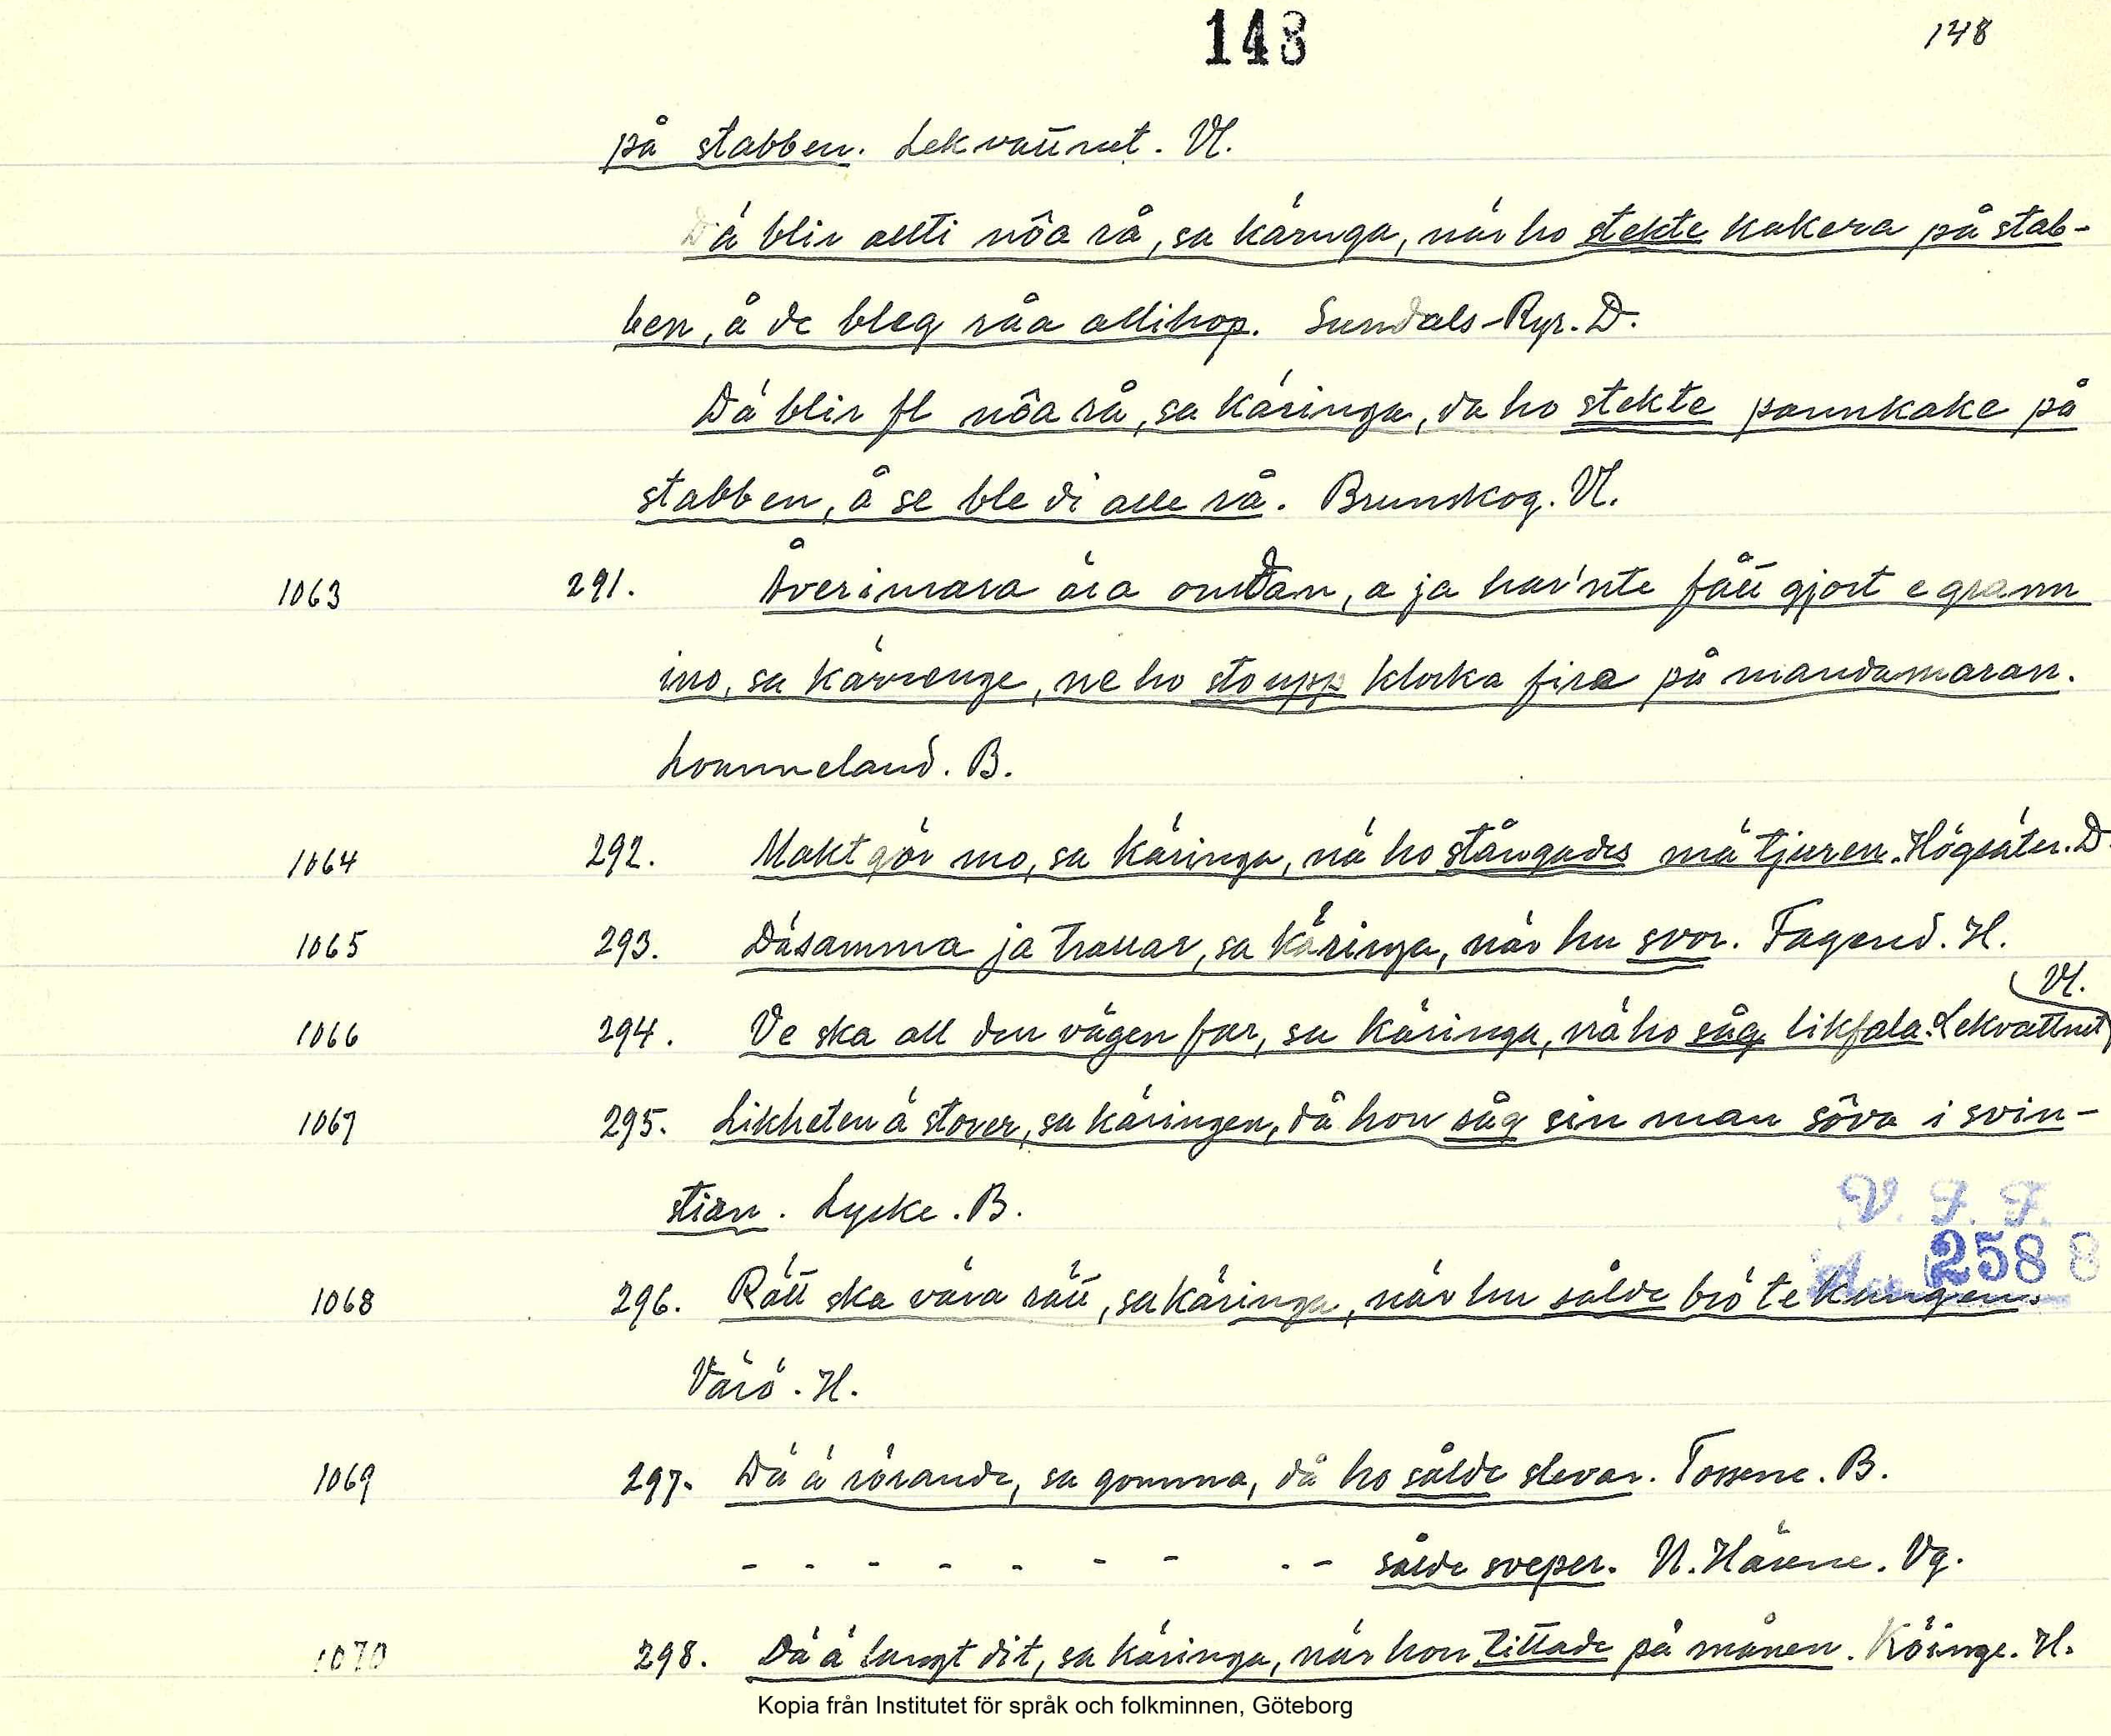 148
148
på stabben. Lekvattnet. Vl.
Dä blir allti nôa rå, sa käringa, när ho stekte kakera på stab-
ben, å de bleg råa allihop. Sundals-Ryr. D.
Dä blir fl nôa rå, sa käringa, da ho stekte pannkake på
stabben, å se ble di alle rå. Brunskog. Vl.
1063 291. Överimara äia onsdan, a ja har'nte fått gjort e grann
ino, sa kärrenge, ne ho sto upp klocka fira på mandamaran.
Lommeland. B.
1064 292. Makt gör mo, sa käringa, nä ho stångades mä tjuren. Högsäter. D.
1065 293. Däsamma ja trallar, sa käringa, när hu svor. Fagered. H.
1066 294. Ve ska all den vägen far, sa käringa, nä ho såg likfala. Lekvattnet
Vl.
1067 295. Likheten ä stover, sa käringen, då hon såg sin man sôva i svin-
stian. Lycke. B.
V. F. F.
258 8
1068 296. Rätt ska våra rätt, sa käringa, när hu sålde brö te kungen.
Värö. H.
1069 297. Dä ä rörande, sa gomma, då ho sålde slevar. Tossene. B.
- - - - - - - - - sålde sveper. N. Härene. Vg.
1070 298. Dä ä langt dit, sa käringa, när hon tittade på månen. Köinge. H.
Kopia från Institutet för språk och folkminnen, Göteborg